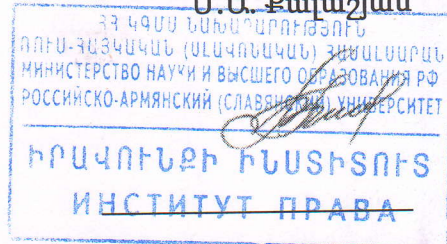 Ս.Ս. Քալաշյան
ՀՀ ԿԳՄՍ ՆԱԽԱՐԱՐՈՒԹՅՈՒՆ
ՌՈՒՍ-ՀԱՅԿԱԿԱՆ (ՍԼԱՎՈՆԱԿԱՆ) ՀԱՄԱԼՍԱՐԱՆ
МИНИСТЕРСТВО НАУКИ И ВЫСШЕГО ОБРАЗОВАНИЯ РФ
РОССИЙСКО-АРМЯНСКИЙ (СЛАВЯНСКИЙ) УНИВЕРСИТЕТ
ԻՐԱՎՈՒՆՔԻ ԻՆՍՏԻՏՈՒՏ
ИНСТИТУТ ПРАВА